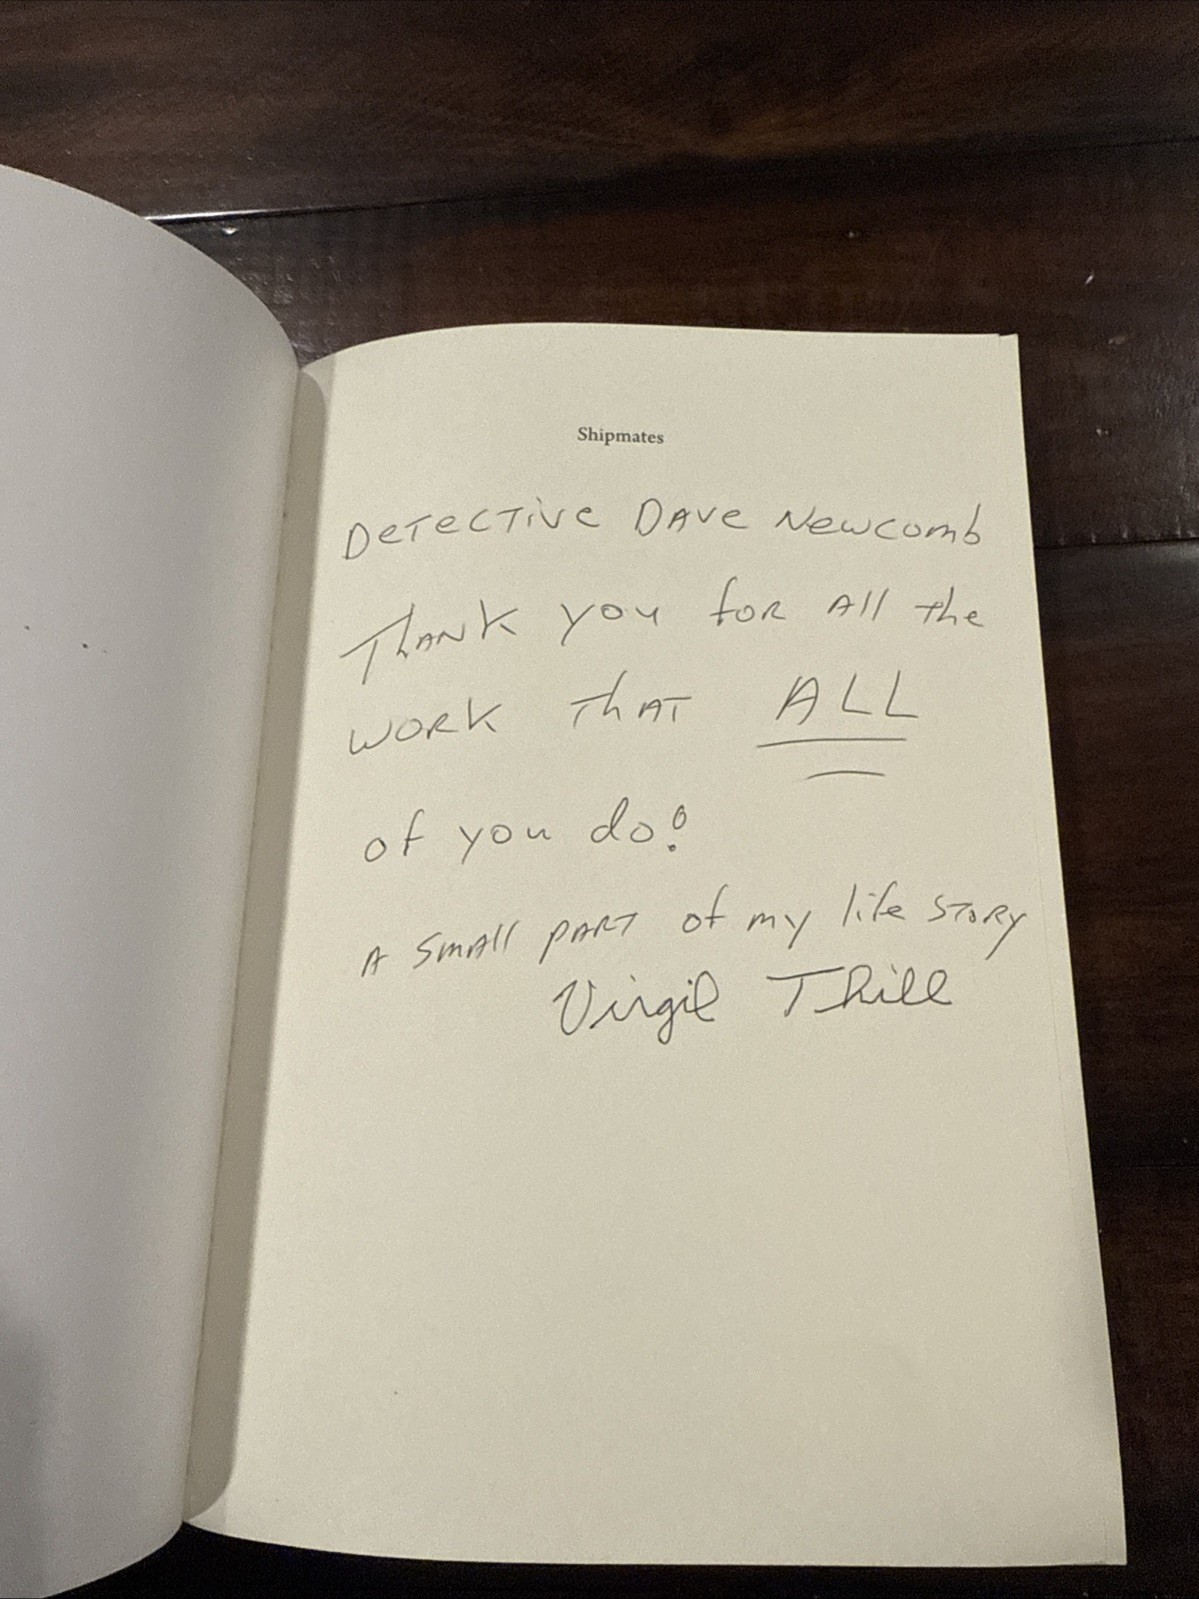 Shipmates
Detective Dave Newcomb
Thank you for All the
work that ALL
of you do!
A small part of my life story
Virgil Thill